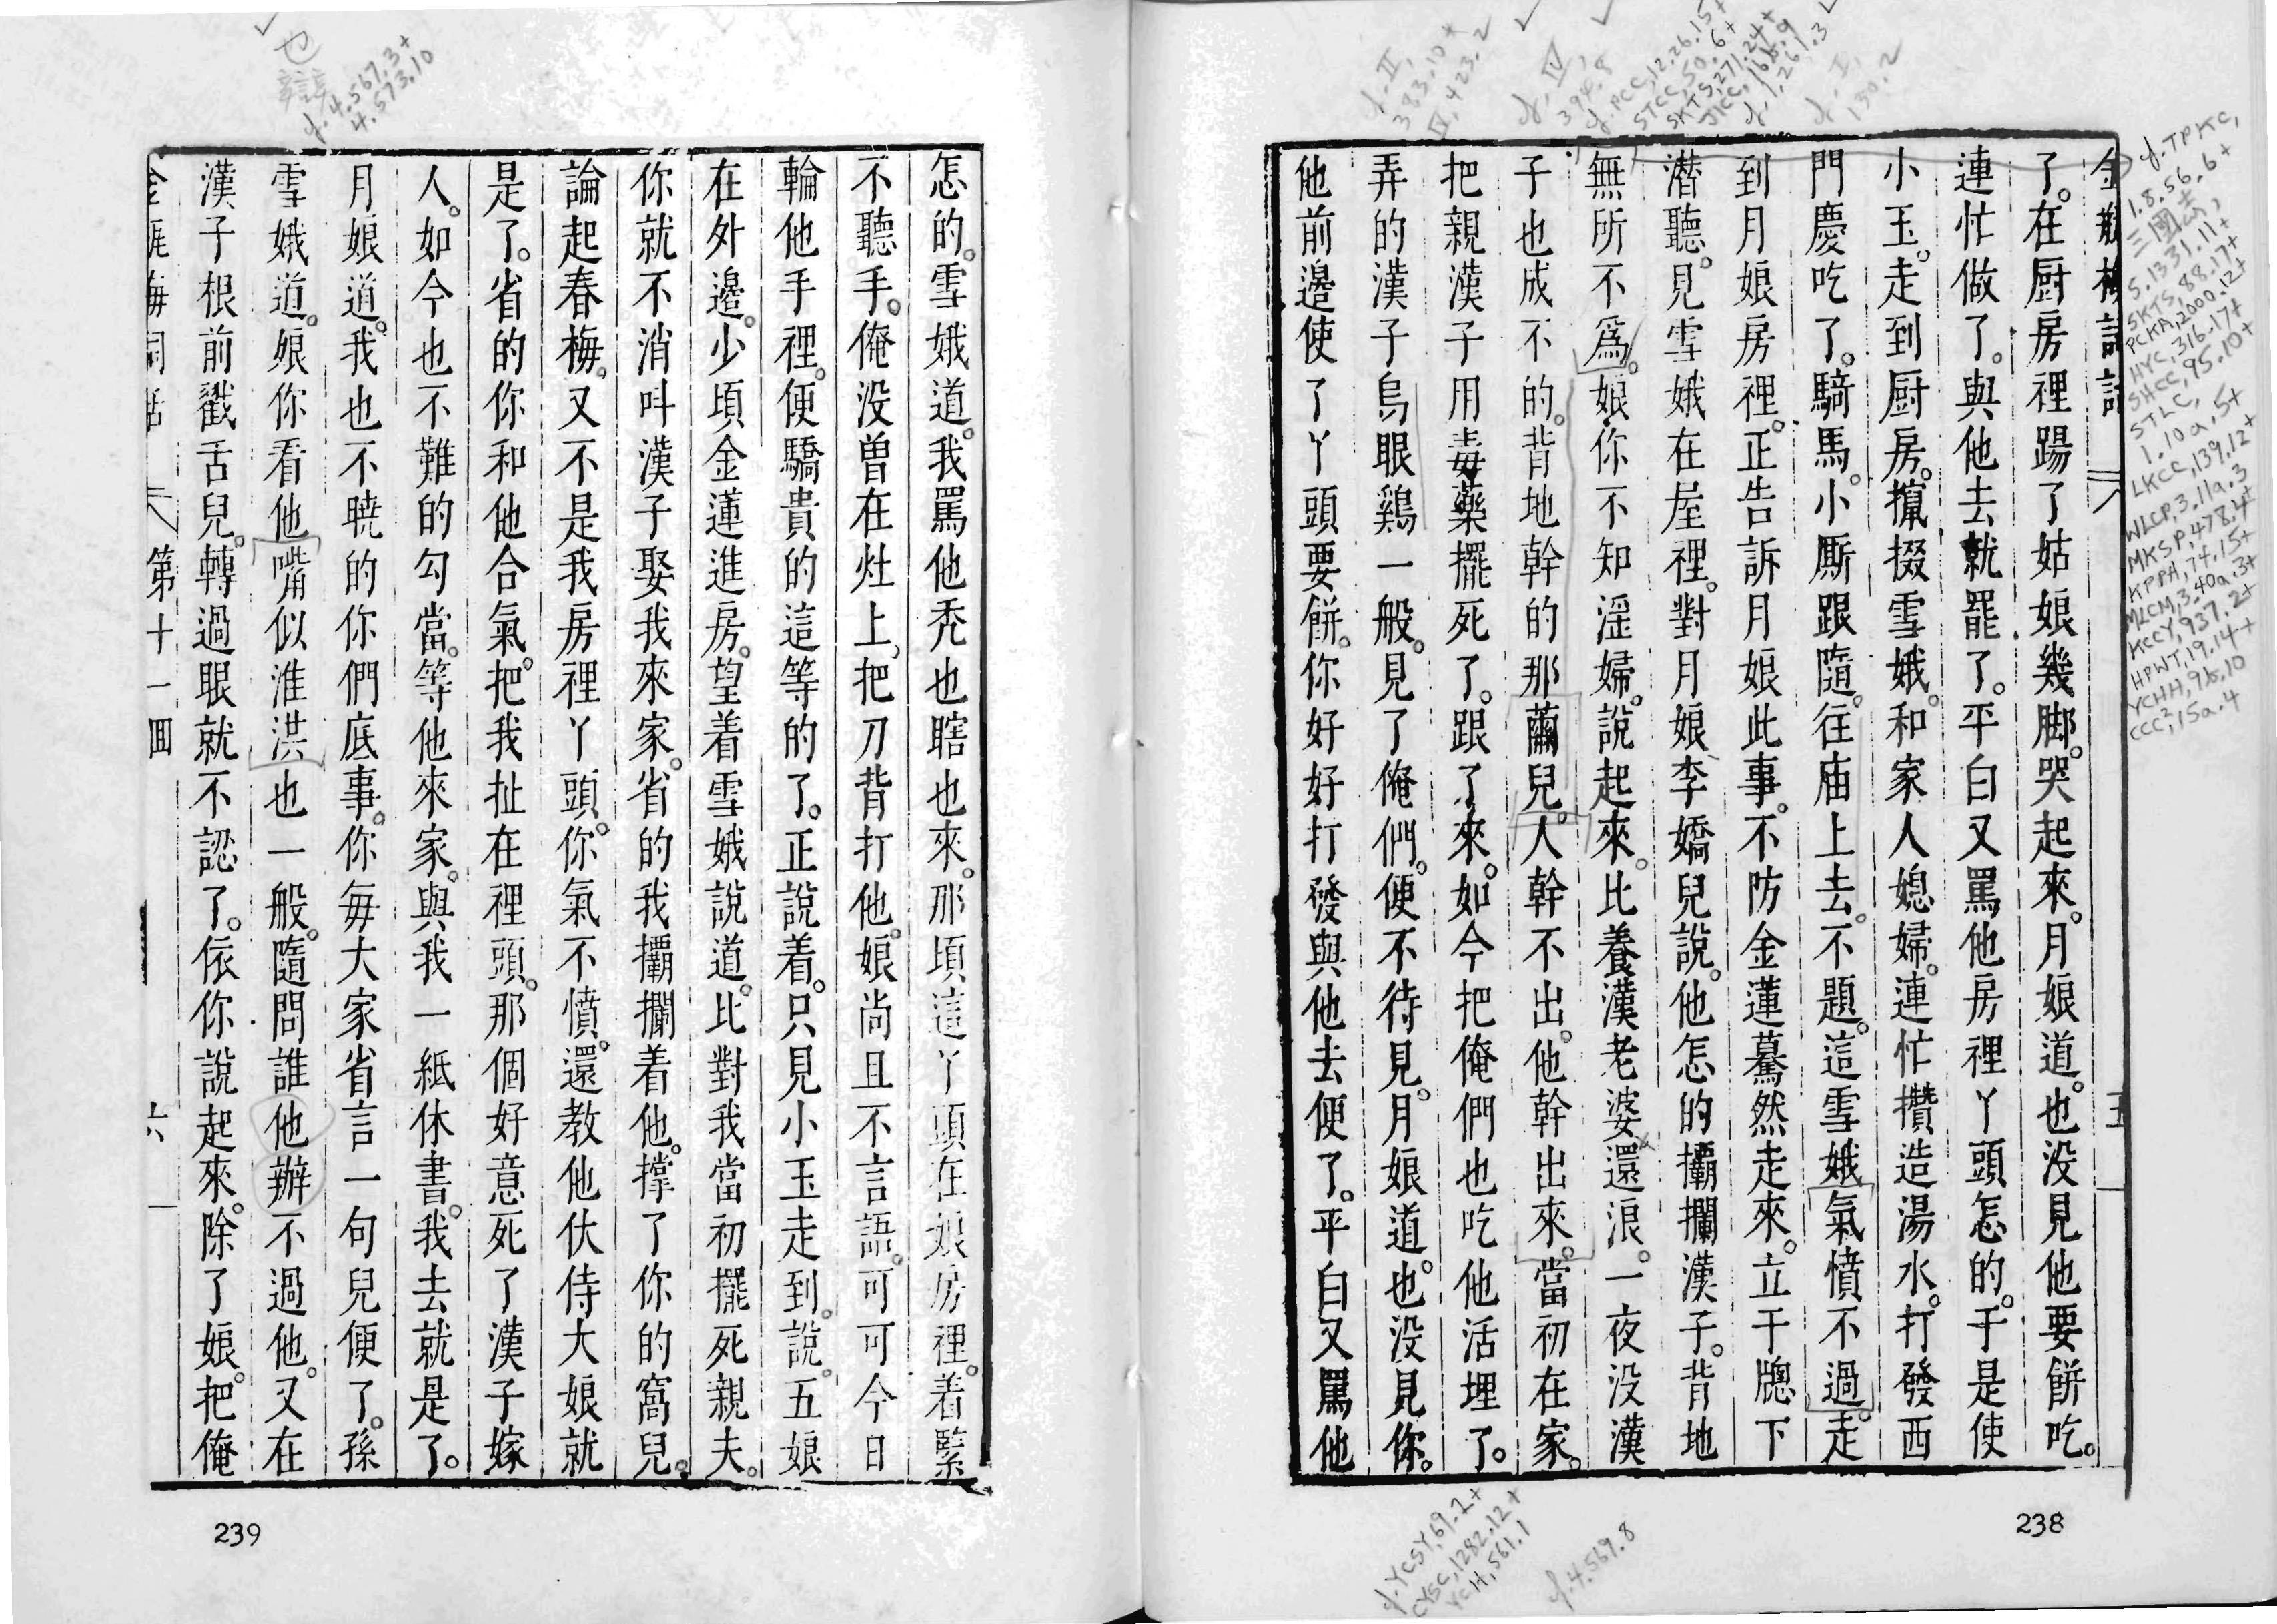 金瓶梅詞話 八 五
了。在厨房裡踢了姑娘幾脚。哭起來。月娘道。也没見他要餅吃。
連忙做了。與他去就罷了。平白又罵他房裡丫頭怎的。于是使
小玉。走到厨房。攛掇雪娥。和家人媳婦。連忙攢造湯水。打發西
門慶吃了。騎馬。小厮跟隨。往庙上去。不題。這雪娥氣憤不過。走
到月娘房裡。正告訴月娘此事。不防金蓮驀然走來。立于牕下
潜聽。見雪娥在屋裡。對月娘李嬌兒說。他怎的攔攔漢子。背地
無所不爲。娘你不知淫婦。說起來。比養漢老婆還浪。一夜没漢
子也成不的。背地幹的那繭兒。人幹不出。他幹出來。當初在家。
把親漢子用毒藥擺死了。跟了來。如今把俺們也吃他活埋了。
弄的漢子烏眼鷄一般。見了俺們。便不待見。月娘道。也没見你。
他前邊使了丫頭要餅。你好好打發與他去便了。平白又罵他
238
怎的。雪娥道。我罵他秃也瞎也來。那頃這丫頭在娘房裡。着緊
不聽手。俺没曾在灶上、把刀背打他。娘尚且不言語。可可今日
輪他手裡。便驕貴的這等的了。正說着。只見小玉走到。說。五娘
在外邊。少頃金蓮進房。望着雪娥說道。比對我當初擺死親夫。
你就不消呌漢子娶我來家。省的我攔攔着他。撑了你的窩兒。
論起春梅。又不是我房裡丫頭。你氣不憤。還教他伏侍大娘就
是了。省的你和他合氣。把我扯在裡頭。那個好意死了漢子嫁
人。如今也不難的勾當。等他來家。與我一紙休書。我去就是了。
月娘道。我也不曉的你們底事。你每大家省言一句兒便了。孫
雪娥道。娘你看他嘴似淮洪也一般。隨問誰他辦不過他。又在
漢子根前戳舌兒。轉過眼就不認了。依你說起來。除了娘。把俺
金瓶梅詞話 八 第十一回 六
239
也
辯
cf. 4.567.3+
4.573.10
cf. II,
383.10+
IV, 423.2
cf. IV,
394.8
cf. PCC, 12.26.15+
STCC, 50.6+
SKTS, 271.24+
JTCC, 166.9
cf. 1.261.3
cf. I,
130.2
cf. TPKC,
1.8.56.6+
三國志,
5.1331.11+
SKTS, 88.17+
PCKA, 2000.12+
HYC, 316.17+
SHCC, 95.10+
STLC,
1.10a.5+
LKCC, 139.12+
WLCP, 3.11a.3
MKSP, 478.4+
KPPA, 74.15+
MLCM, 3.40a.3+
KCCY, 937.2+
HPWT, 19.14+
YCHH, 9b.10
CCC², 15a.4
cf. YCSY, 69.2+
CYSC, 1282.12+
YCH, 561.1
cf. 4.569.8